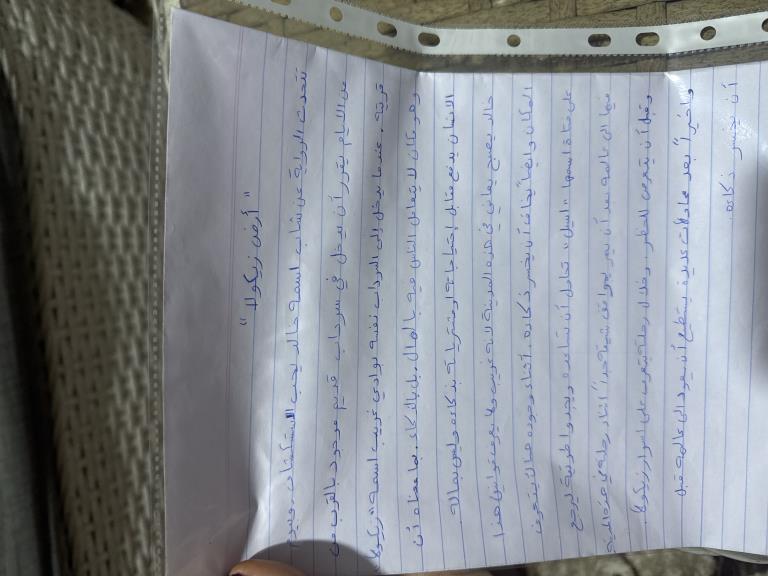 "أرض زيكولا"
تتحدث الرواية عن شاب اسمه خالد يحب الاستكشاف، وفي يوم
من الايام يقرر أن يدخل في سرداب قديم موجود بالقرب من
قريته، عندما يدخل إلى السرداب نفسه بوادي غريب اسمه "زيكولا
وهو مكان لا يتعامل الناس فيه بالمال، بل بالذكاء، بما معناه أن
الانسان يدفع مقابل إحتياجاته او مشترياته بذكاءه وليس بماله
خالد يصبح يعاني في هذه المدينة لانه غريب ولا يعرف قوانين هذا
المكان وايضاً يخاف أن يخسر ذكاءه. أثناء وجوده هناك يتعرف
على فتاة اسمها "اسيل" تحاول أن تساعده ويجدوا طريقة ليرجع
فيها الى عالمه بعد أن يمر بمواقف صعبة جداً اثناء رحلته في هذه المدينة
وقبل أن يتعرض للخطر. وخلال رحلته يتعرف على اسرار زيكولا.
واخيراً بعد محاولات عديدة يستطيع أن يعود الى عالمه قبل
أن يخسر ذكاءه.